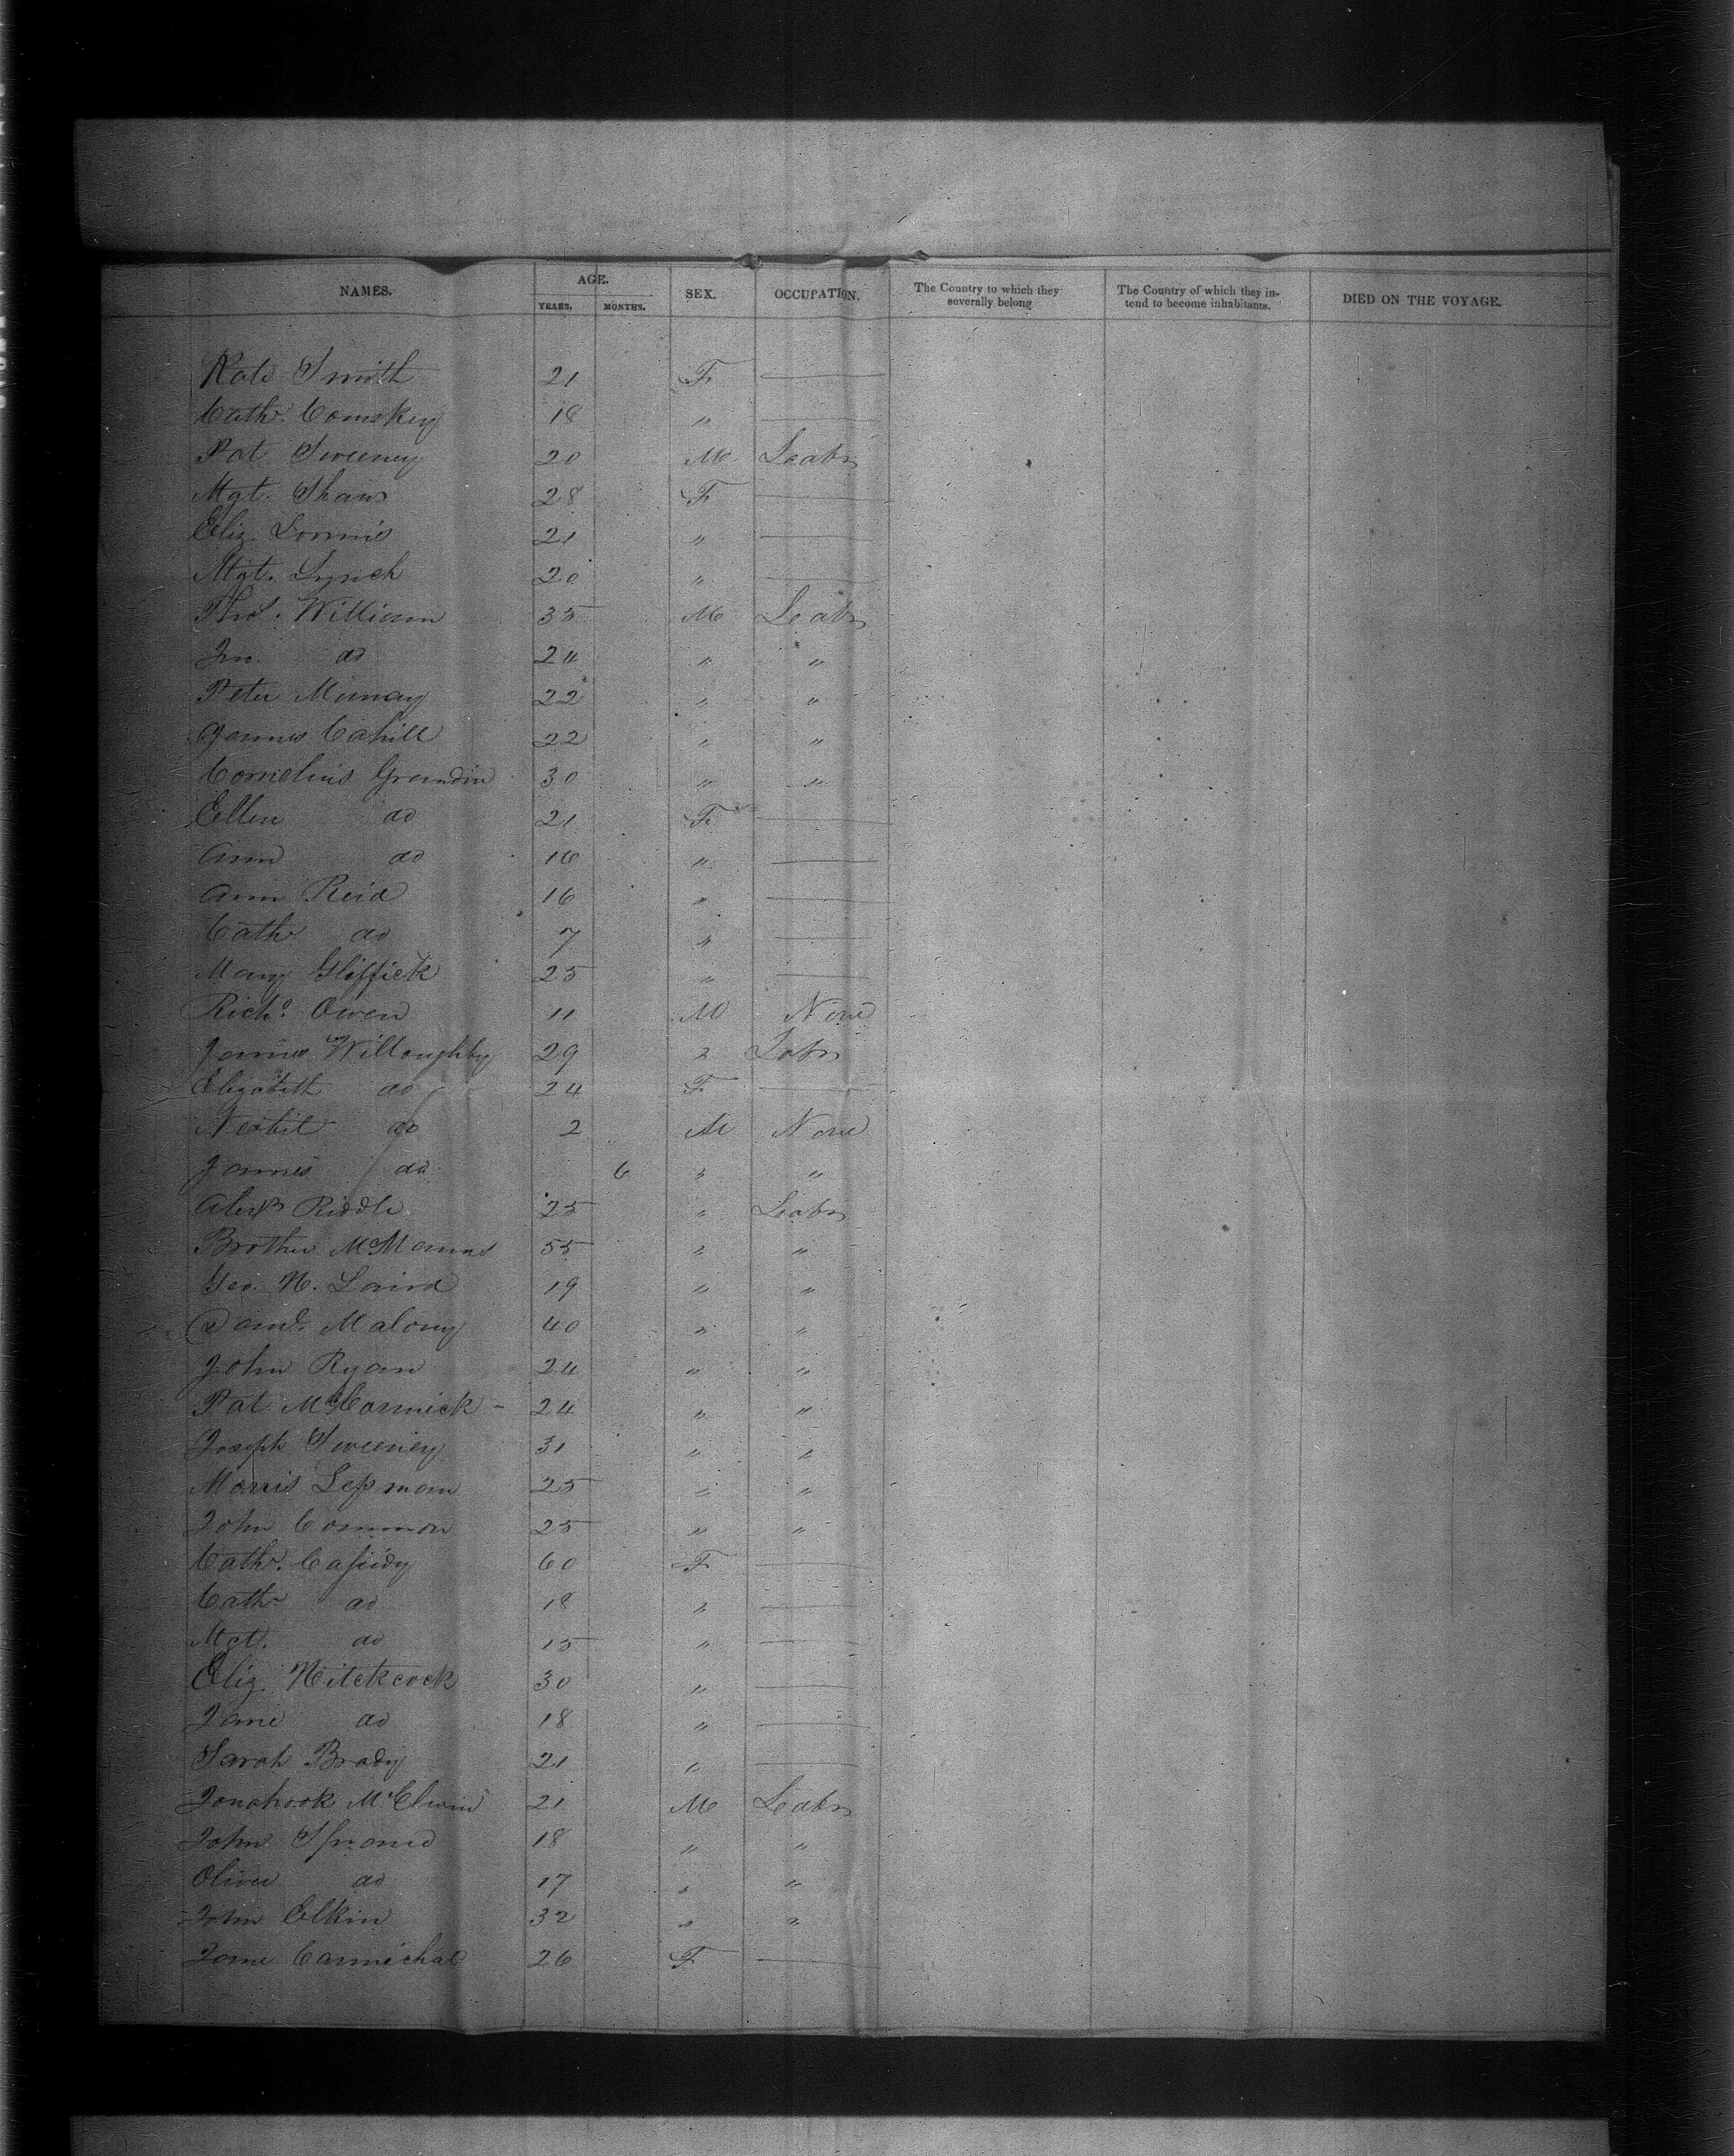 NAMES. AGE. SEX. OCCUPATION. The Country to which they severally belong The Country of which they intend to become inhabitants. DIED ON THE VOYAGE.
YEARS. MONTHS.
Kate Smith 21 F —
Cath. Comskey 18 " —
Pat Sweeney 20 M Labr
Mgt. Shaw 28 F —
Eliz 21 " —
Mgt. Lynch 20 " —
Thos. William 35 M Labr
Jno. do 24 " "
Peter Murray 22 " "
James Cahill 22 " "
Cornelius Grandin 30 " "
Ellen do 21 F —
Ann do 16 " —
Ann Reid 16 " —
Cath do 7 " —
Mary Gliffick 25 " —
Richd. Owen 11 M None
James Willoughby 29 " Labr
Elizabeth do 24 F —
Nesbit do 2 M None
James do 6 " "
Alexr Riddle 25 " Labr
Brother McManus 55 " "
Geo. H. Laird 19 " "
Danl. Malony 40 " "
John Ryan 24 " "
Pat McCormick - 24 " "
Joseph Sweeney 31 " "
Morris Lessman 25 " "
John Common 25 " "
Cath. Cassidy 60 F —
Cath do 18 " —
Mgt. do 15 " —
Eliz. Hitchcock 30 " —
Jane do 18 " —
Sarah Brady 21 " —
McElwin 21 M Labr
John 18 " "
Oliver do 17 " "
John Elkin 32 " "
Jane Carmichal 26 F —